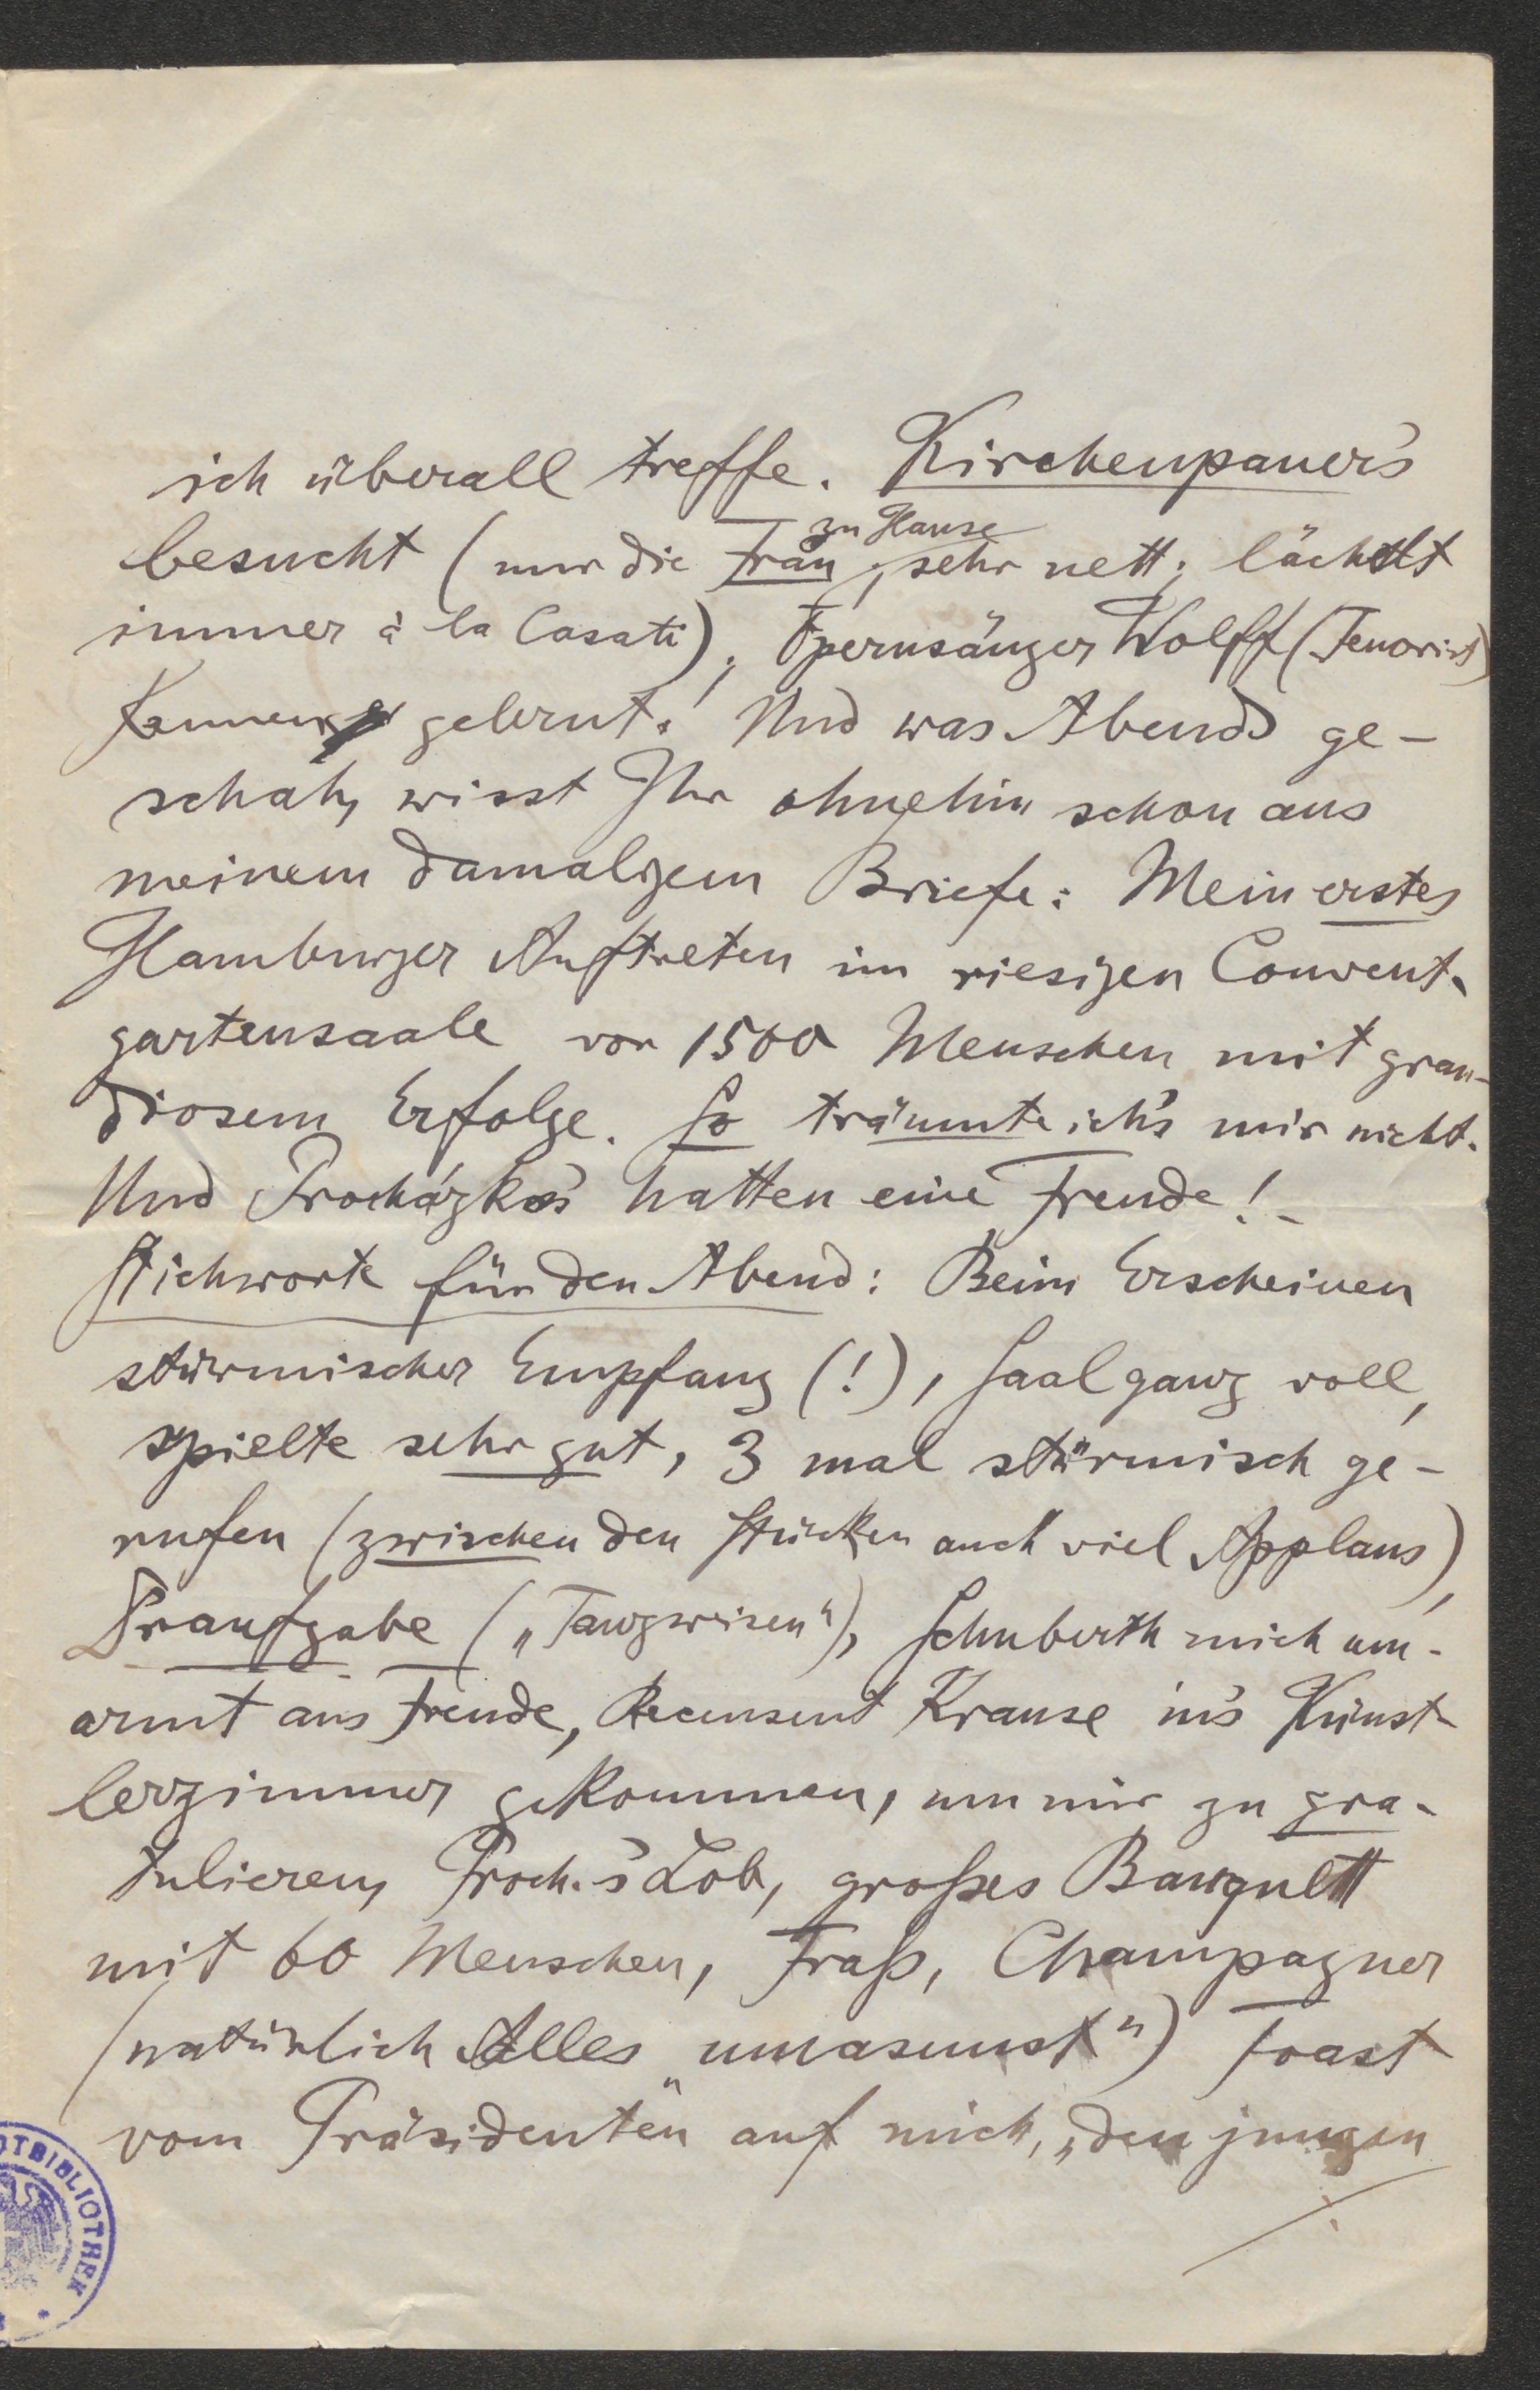 ich überall treffe. Kirchenpauer's
besucht (nur die Frau zu Hause; sehr nett; lächelt
immer à la Casati); Opernsänger Wolff (Tenorist)
kennen gelernt! Und was Abends ge-
schah, wisst Ihr ohnehin schon aus
meinem damaligem Briefe: Mein erstes
Hamburger Auftreten im riesigen Convent-
gartensaale vor 1500 Menschen mit gran-
diosem Erfolge. So träumte ich's mir nicht.
Und Procházka's hatten eine Freude! -
Stichworte für den Abend: Beim Erscheinen
stürmischer Empfang (!), Saal ganz voll,
spielte sehr gut, 3 mal stürmisch ge-
rufen (zwischen den Stücken auch viel Applaus),
Draufgabe („Tanzweisen"), Schuberth mich um-
armt aus Freude, Recensent Krause in's Künst-
lerzimmer gekommen, um mir zu gra-
tulieren, Proch.'s Lob, großes Banquett
mit 60 Menschen, Fraß, Champagner
(natürlich Alles „umasunst") Toast
vom Präsidenten auf mich, „den jungen
OTBIBLIOTHEK